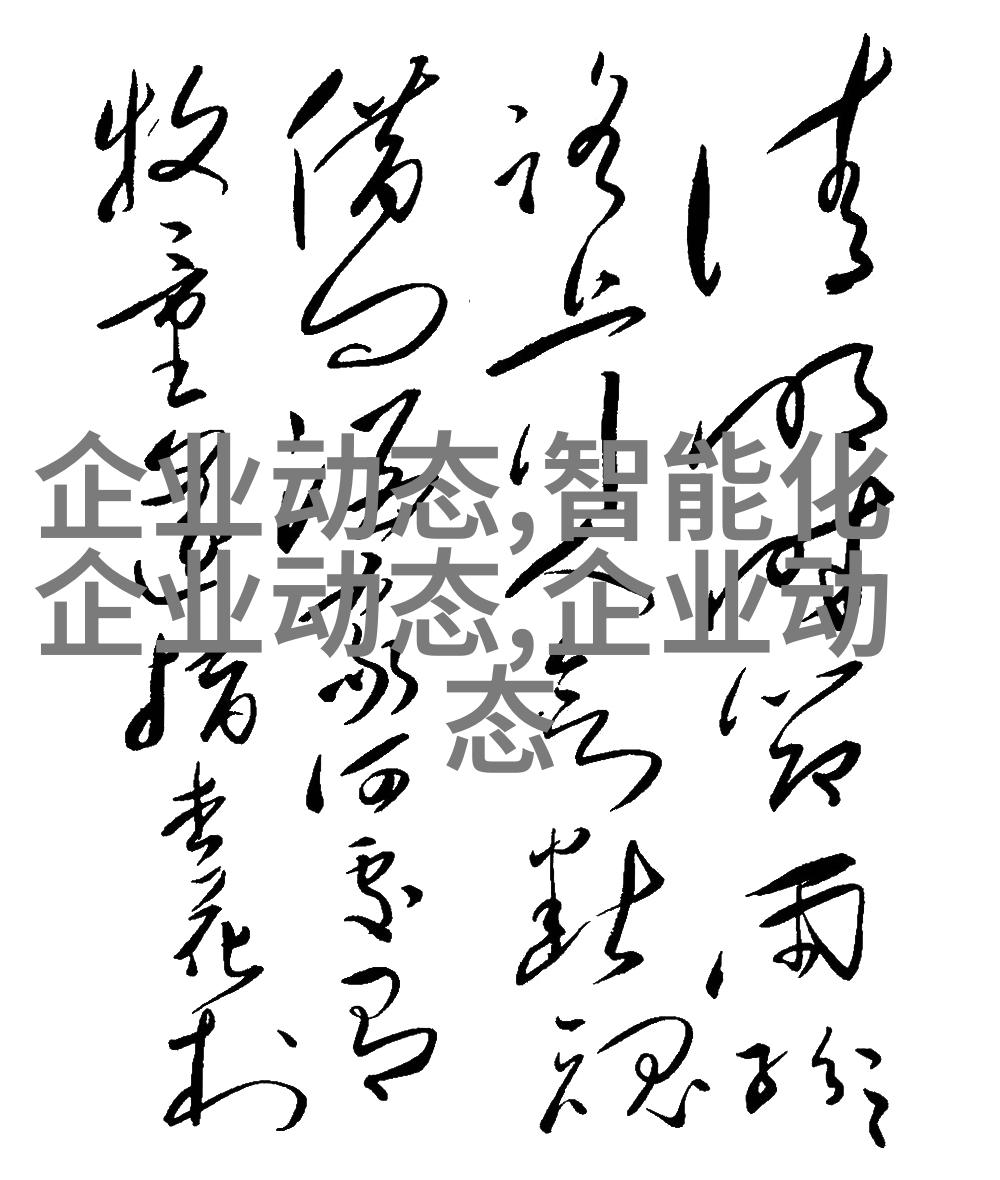 清明時節雨紛紛
路上行人欲斷魂
借問酒家何處有
牧童遥指杏花村
企业动态,智能化
企业动态,企业动
态